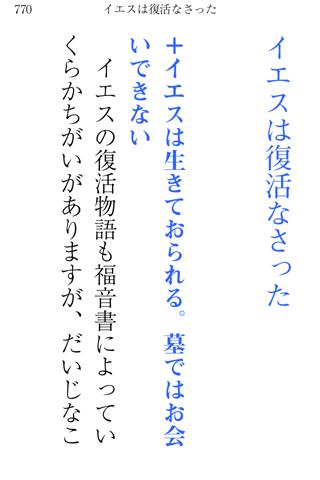 770
イエスは復活なさった
イエスは復活なさった
＋イエスは生きておられる。墓ではお会
いできない
イエスの復活物語も福音書によってい
くらかちがいがありますが、だいじなこ